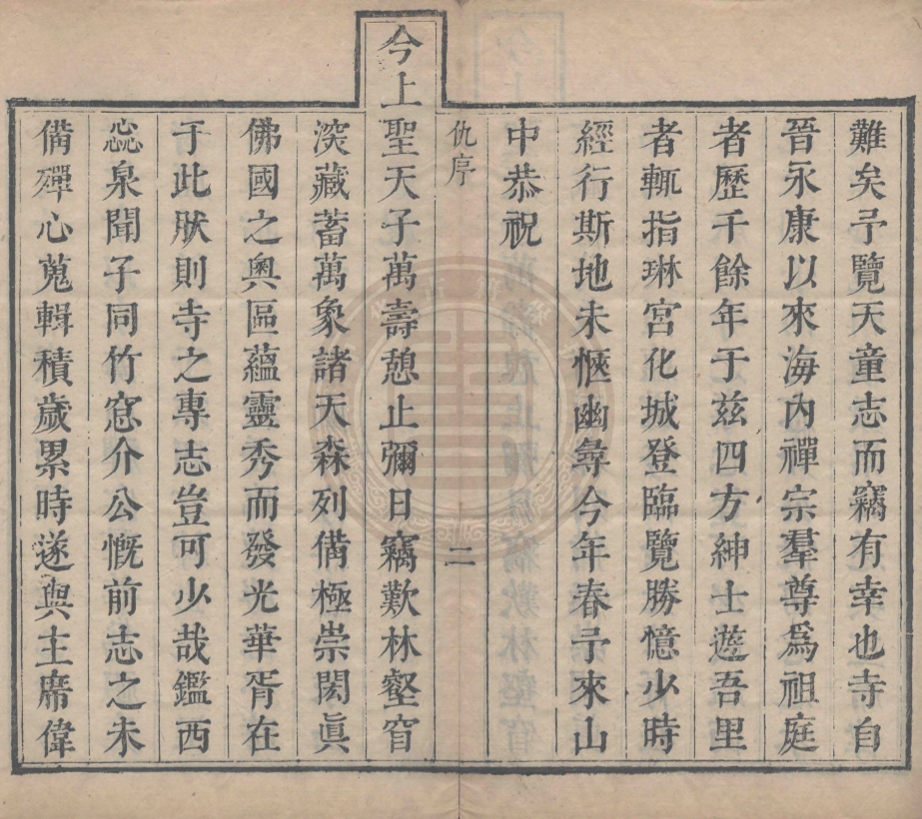 難矣予覽天童志而竊有幸也寺自
晉永康以來海內禪宗羣尊爲祖庭
者歷千餘年于兹四方紳士遊吾里
者輒指琳宮化城登臨覽勝憶少時
經行斯地未愜幽尋今年春予來山
中恭祝
仇序
二
今上聖天子萬壽憩止彌日竊歎林壑窅
深藏蓄萬象諸天森列備極崇閎眞
佛國之奥區蘊靈秀而發光華胥在
于此狀則寺之專志豈可少哉鑑西
惢泉聞子同竹窓介公慨前志之未
備殫心蒐輯積歲累時遂與主席偉